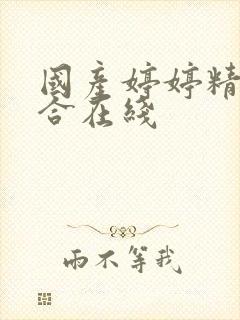 國產婷婷精
合在綫
雨不等我